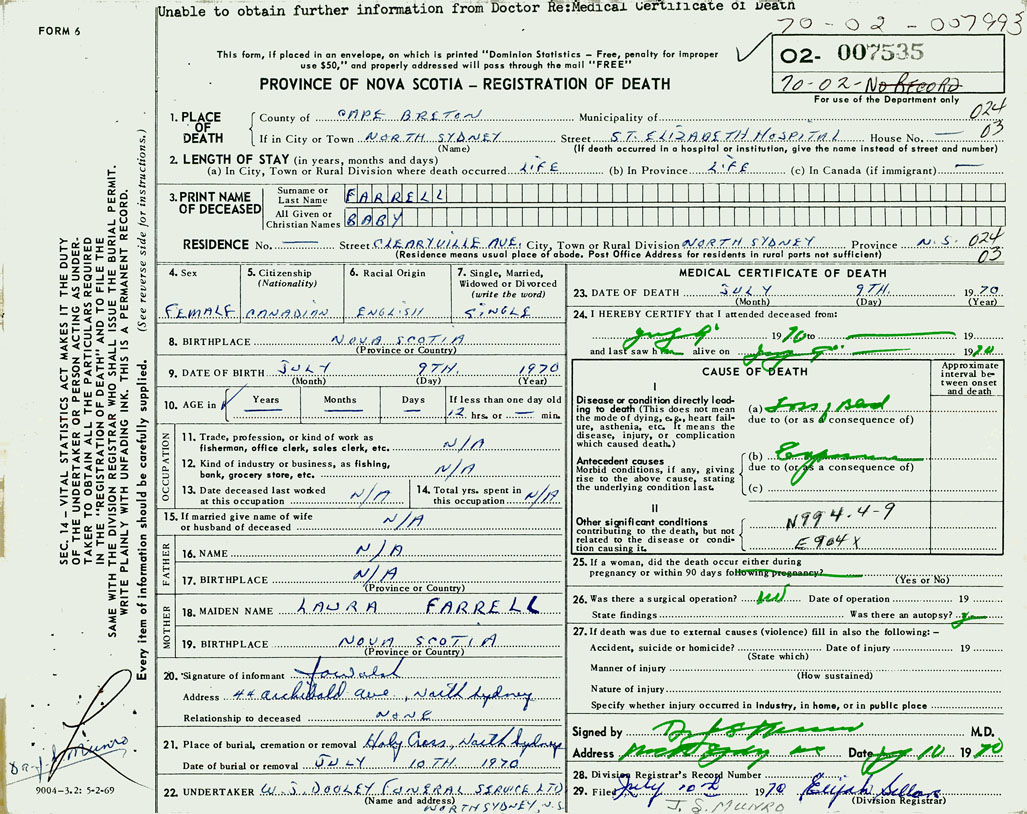 Unable to obtain further information from Doctor Re:Medical Certificate of Death
70-02-007993
FORM 6
This form, if placed in an envelope, on which is printed "Dominion Statistics – Free, penalty for improper
use $50," and properly addressed will pass through the mail "FREE"
02- 007535
70-02-No RECORD
For use of the Department only
PROVINCE OF NOVA SCOTIA – REGISTRATION OF DEATH
1. PLACE OF DEATH
County of CAPE BRETON Municipality of 024
If in City or Town NORTH SYDNEY Street ST. ELIZABETH HOSPITAL House No. — 03
(Name) (If death occurred in a hospital or institution, give the name instead of street and number)
2. LENGTH OF STAY (in years, months and days)
(a) In City, Town or Rural Division where death occurred LIFE (b) In Province LIFE (c) In Canada (if immigrant) —
3. PRINT NAME OF DECEASED
Surname or Last Name FARRELL
All Given or Christian Names BABY
RESIDENCE No. — Street CLEARYVILLE AVE. City, Town or Rural Division NORTH SYDNEY Province N.S. 024
(Residence means usual place of abode. Post Office Address for residents in rural parts not sufficient) 03
4. Sex
FEMALE
5. Citizenship
(Nationality)
CANADIAN
6. Racial Origin
ENGLISH
7. Single, Married,
Widowed or Divorced
(write the word)
SINGLE
8. BIRTHPLACE NOVA SCOTIA
(Province or Country)
9. DATE OF BIRTH JULY 9TH. 1970
(Month) (Day) (Year)
10. AGE in Years Months Days If less than one day old
— — — 12 hrs. or — min.
OCCUPATION
11. Trade, profession, or kind of work as
fisherman, office clerk, sales clerk, etc. N/A
12. Kind of industry or business, as fishing,
bank, grocery store, etc. N/A
13. Date deceased last worked
at this occupation N/A
14. Total yrs. spent in
this occupation N/A
15. If married give name of wife
or husband of deceased N/A
FATHER
16. NAME N/A
17. BIRTHPLACE N/A
(Province or Country)
MOTHER
18. MAIDEN NAME LAURA FARRELL
19. BIRTHPLACE NOVA SCOTIA
(Province or Country)
20. Signature of informant
Address 44 archibald ave., North Sydney
Relationship to deceased NONE
21. Place of burial, cremation or removal Holy Cross, North Sydney
Date of burial or removal JULY 10TH. 1970
22. UNDERTAKER W. J. DOOLEY FUNERAL SERVICE LTD
(Name and address) NORTH SYDNEY, N.S.
MEDICAL CERTIFICATE OF DEATH
23. DATE OF DEATH JULY 9TH. 1970
(Month) (Day) (Year)
24. I HEREBY CERTIFY that I attended deceased from:
9 1970 to —
and last saw h alive on 9 — 1970
CAUSE OF DEATH
Approximate
interval be-
tween onset
and death
I
Disease or condition directly lead-
ing to death (This does not mean
the mode of dying, e.g., heart fail-
ure, asthenia, etc. It means the
disease, injury, or complication
which caused death.)
(a)
due to (or as a consequence of)
Antecedent causes
Morbid conditions, if any, giving
rise to the above cause, stating
the underlying condition last.
(b) Exposure
due to (or as a consequence of)
(c)
II
Other significant conditions
contributing to the death, but not
related to the disease or condi-
tion causing it.
N994.4-9
E904X
25. If a woman, did the death occur either during
pregnancy or within 90 days following pregnancy?
(Yes or No)
26. Was there a surgical operation? Date of operation 19
State findings Was there an autopsy?
27. If death was due to external causes (violence) fill in also the following: –
Accident, suicide or homicide? Date of injury 19
(State which)
Manner of injury
(How sustained)
Nature of injury
Specify whether injury occurred in Industry, in home, or in public place
Signed by M.D.
Address Date 10 1970
28. Division Registrar's Record Number
29. Filed July 10th 1970 Elijah
(Division Registrar)
J. S. MUNRO
SEC. 14 – VITAL STATISTICS ACT MAKES IT THE DUTY
OF THE UNDERTAKER OR PERSON ACTING AS UNDER-
TAKER TO OBTAIN ALL THE PARTICULARS REQUIRED
IN THE "REGISTRATION OF DEATH" AND TO FILE THE
SAME WITH THE DIVISION REGISTRAR WHO SHALL ISSUE THE BURIAL PERMIT.
WRITE PLAINLY WITH UNFADING INK. THIS IS A PERMANENT RECORD.
Every item of information should be carefully supplied. (See reverse side for instructions.)
Dr. J. S. Munro
9004-3.2: 5-2-69